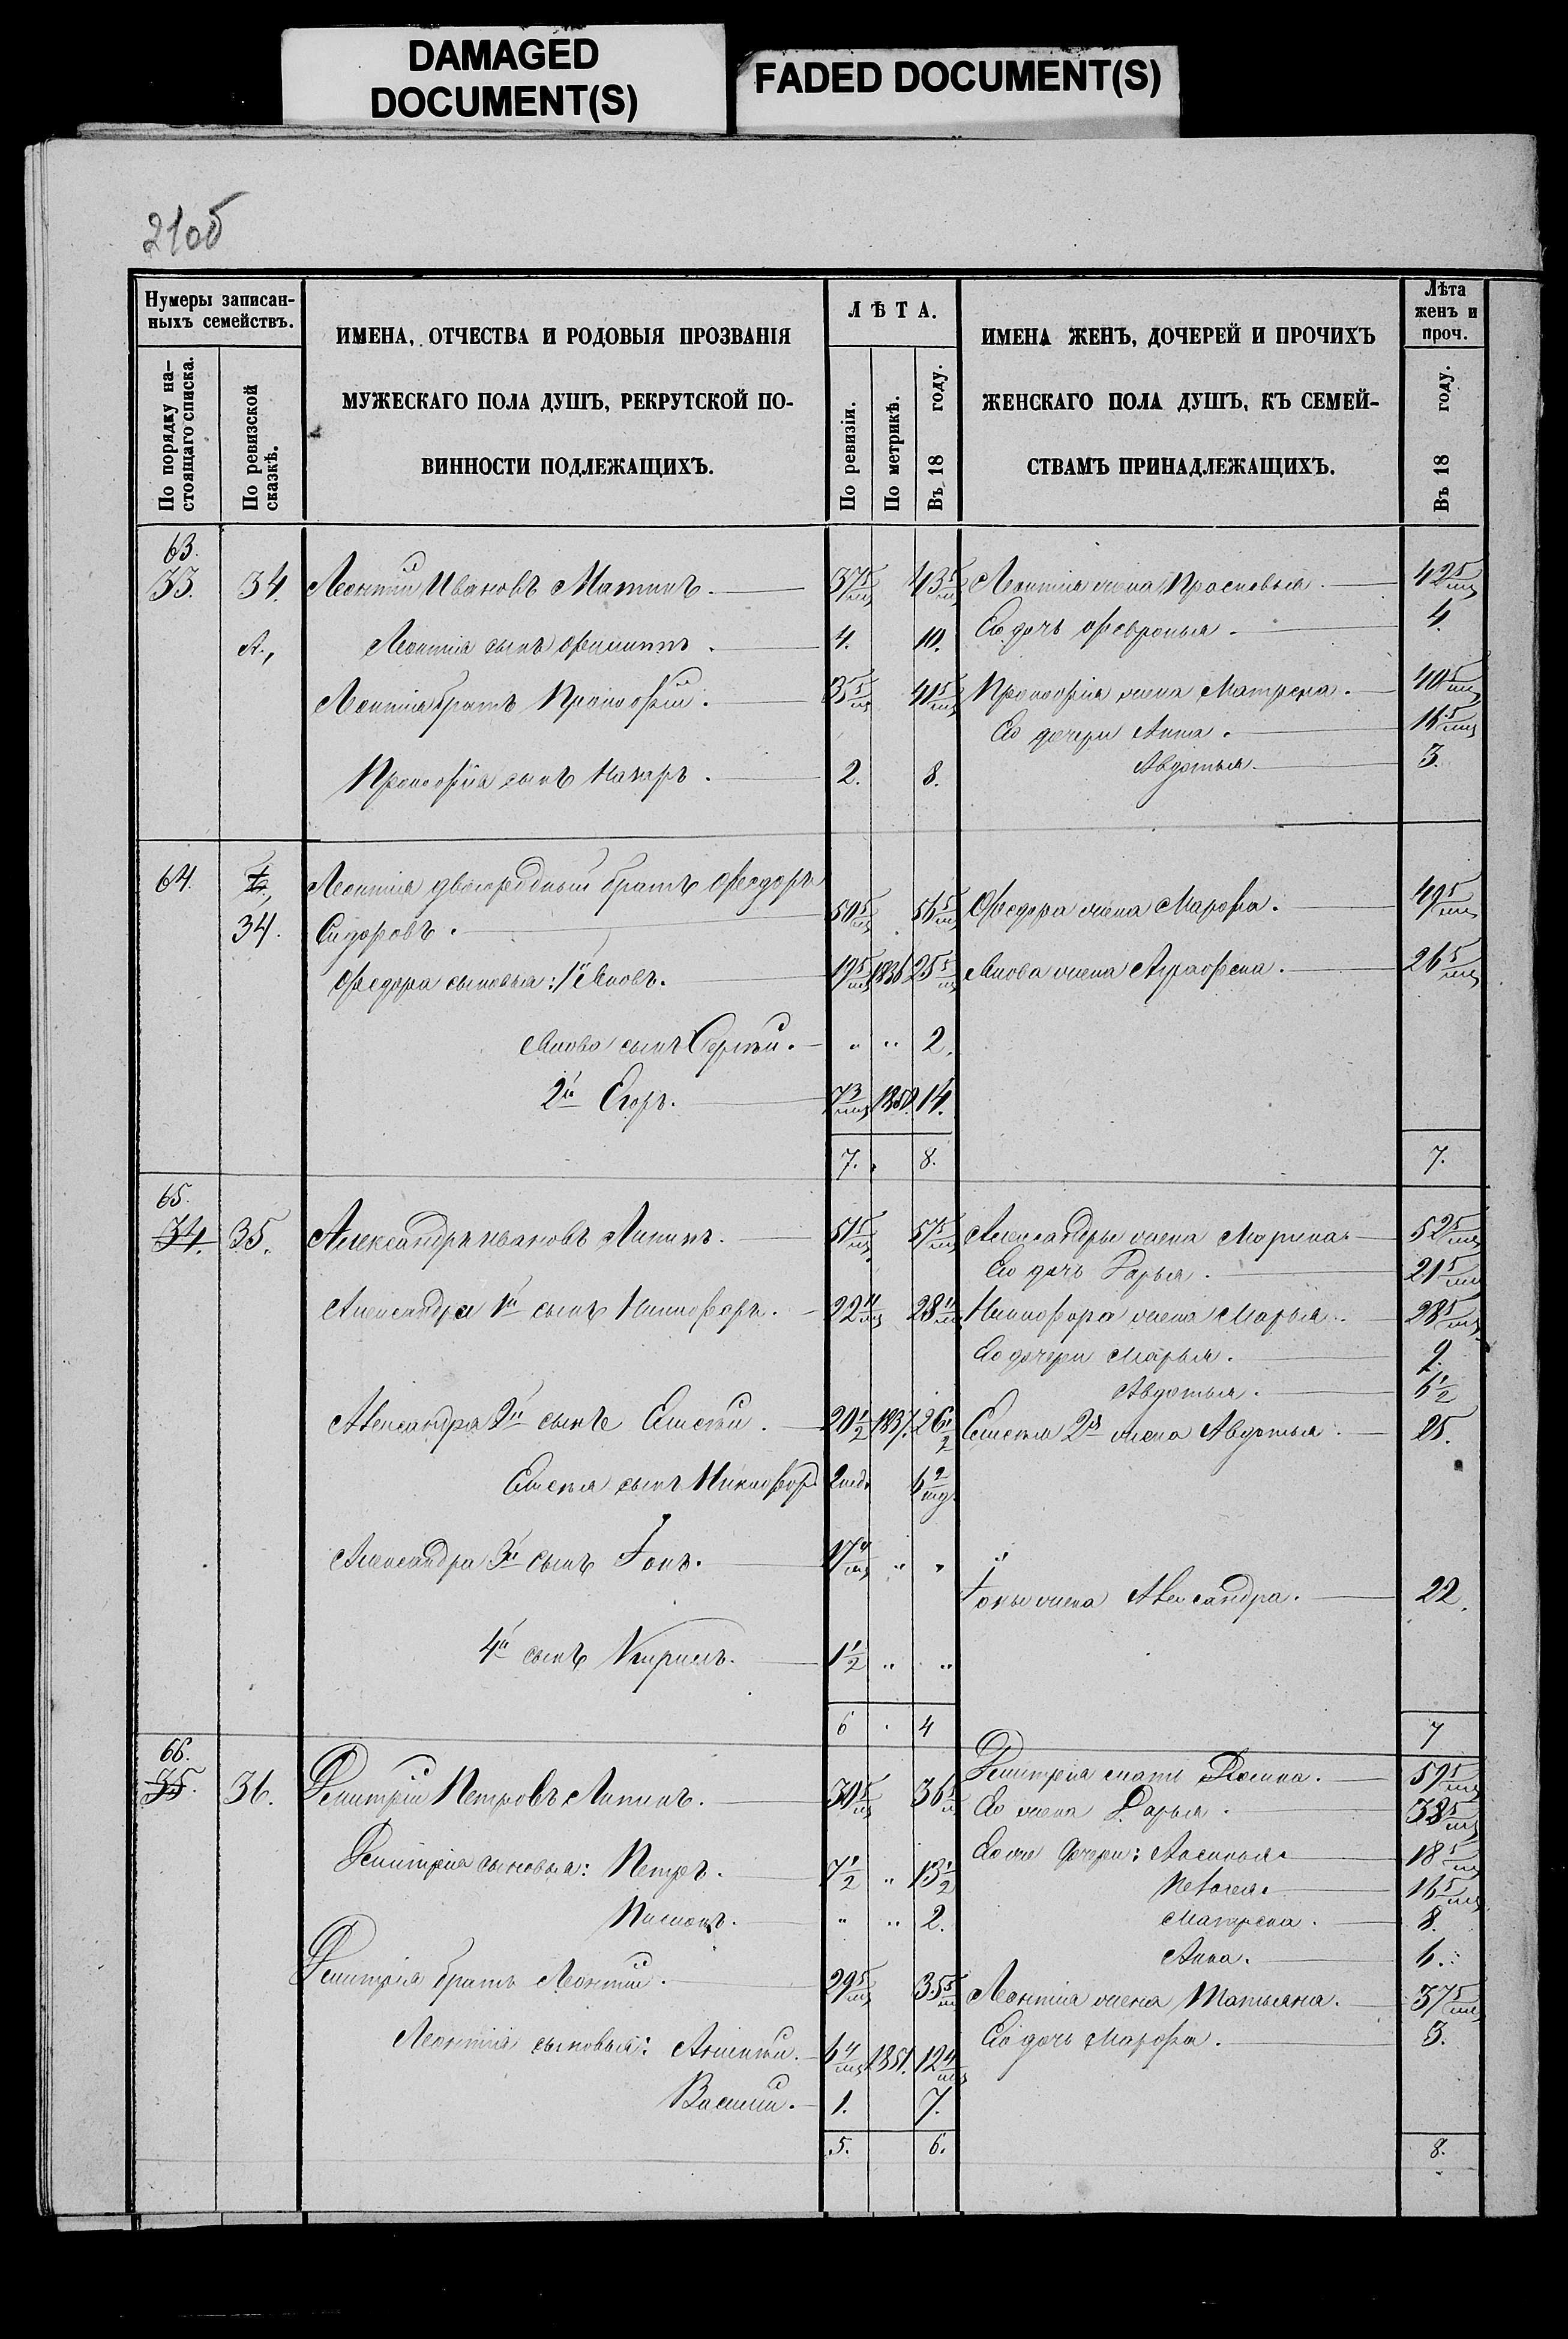 DAMAGED
DOCUMENT(S)
FADED DOCUMENT(S)
21об
Нумеры записан-
ныхъ семействъ.
По порядку на-
стоящаго списка.
По ревизской
сказкѣ.
ИМЕНА, ОТЧЕСТВА И РОДОВЫЯ ПРОЗВАНІЯ
МУЖЕСКАГО ПОЛА ДУШЪ, РЕКРУТСКОЙ ПО-
ВИННОСТИ ПОДЛЕЖАЩИХЪ.
ЛѢТА.
По ревизіи.
По метрикѣ.
Въ 18 году.
ИМЕНА ЖЕНЪ, ДОЧЕРЕЙ И ПРОЧИХЪ
ЖЕНСКАГО ПОЛА ДУШЪ, КЪ СЕМЕЙ-
СТВАМЪ ПРИНАДЛЕЖАЩИХЪ.
Лѣта
женъ и
проч.
Въ 18 году.
63.
33. 34. Леонтій Ивановъ 37 5/мц 43 5/мц Леонтія жена Прасковья. 42 5/мц
Его дочь Февронья. 4.
А., Леонтія сынъ Филиппъ. 4. 10.
Леонтія братъ Прокофій. 35 5/мц 41 5/мц Прокофія жена Матрена. 40 5/мц
Его дочери Анна. 16 5/мц
Авдотья. 3.
Прокофія сынъ Назаръ. 2. 8.
64. Леонтія двоюродный братъ Федоръ
34. Сидоровъ. 50 5/мц 56 5/мц Федора жена Марфа. 49 5/мц
Федора сыновья: 1й Яковъ. 19 5/мц 1836 25 5/мц Якова жена Аграфена. 26 5/мц
Якова сынъ Сергѣй. " " 2.
2й Егоръ. 7 3/мц 1850. 14.
7. 8. 7.
65.
34. 35. Александръ Ивановъ Лапинъ. 51 5/мц 57 5/мц Александры жена Марина. 52 5/мц
Его дочь Дарья. 21 5/мц
Александра 1й сынъ Никифоръ. 22 11/мц 28 11/мц Никифора жена Марья. 28 5/мц
Его дочери Марья. 9.
Авдотья. 6 1/2
Александра 2й сынъ Елисѣй. 20 1/2 1837. 26 1/2 Елисѣя 2я жена Авдотья. 25.
Елисѣя сынъ Никифоръ 2 нед. 6 2/нед.
Александра 3й сынъ Іона. " "
Іоны жена Александра. 22.
4й сынъ Кирилъ. 1 1/2 " "
6 4 7
66.
35. 36. Дмитрій Петровъ Лапинъ. 30 5/мц 36 5/мц Дмитрія мать 59 5/мц
Его жена Дарья. 38 5/мц
Дмитрія сыновья: Петръ. 7 1/2 " 13 1/2 Его же дочери: Аксинья. 18 5/мц
Пелагея. 16 5/мц
" " 2. Матрена. 8.
Анна. 6.
Дмитрія братъ Леонтій. 29 5/мц 35 5/мц Леонтія жена Татьяна. 37 5/мц
Его дочь Марфа. 3.
Леонтія сыновья: Алексѣй. 6 4/мц 1851. 12 4/мц
Василій. 1. 7.
5. 6. 8.